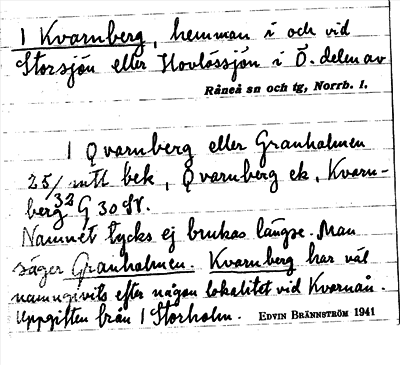 1 Kvarnberg, hemman i och vid
Storsjön eller Hovlössjön i Ö. delen av
Råneå sn och tg, Norrb. l.
1 Qvarnberg eller Granholmen
25/32 mtl bek, Qvarnberg ek, Kvarn-
berg G 30 St.
Namnet tycks ej brukas längse. Man
säger Granholmen. Kvarnberg har väl
namngivits efter någon lokalitet vid Kvarnån.
Uppgiften från 1 Storholm. EDVIN BRÄNNSTRÖM 1941